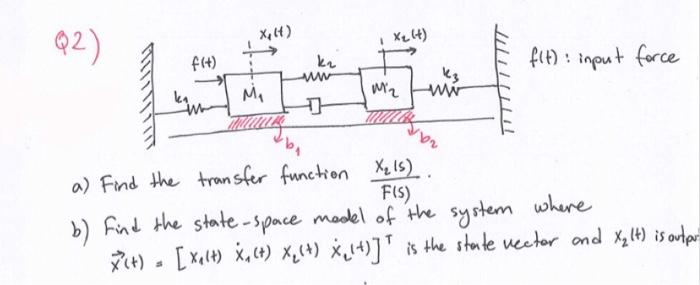 Q2)
x₁(t)
x₂(t)
f(t)
k₂
k₃
f(t) : input force
k₁
M₁
M₂
b₁
b₂
a) Find the transfer function X₂(s)/F(s).
b) Find the state-space model of the system where
x⃗(t) = [x₁(t) ẋ₁(t) x₂(t) ẋ₂(t)]ᵀ is the state vector and x₂(t) is outpu